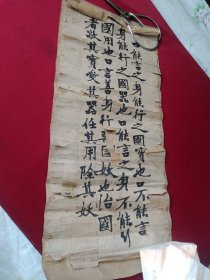 能言之身能行之國寶也口不能言
身能行之國器也口能言之身不能行
國用也口言善身行妖也治國
者敬其寶愛其器任其用除其妖